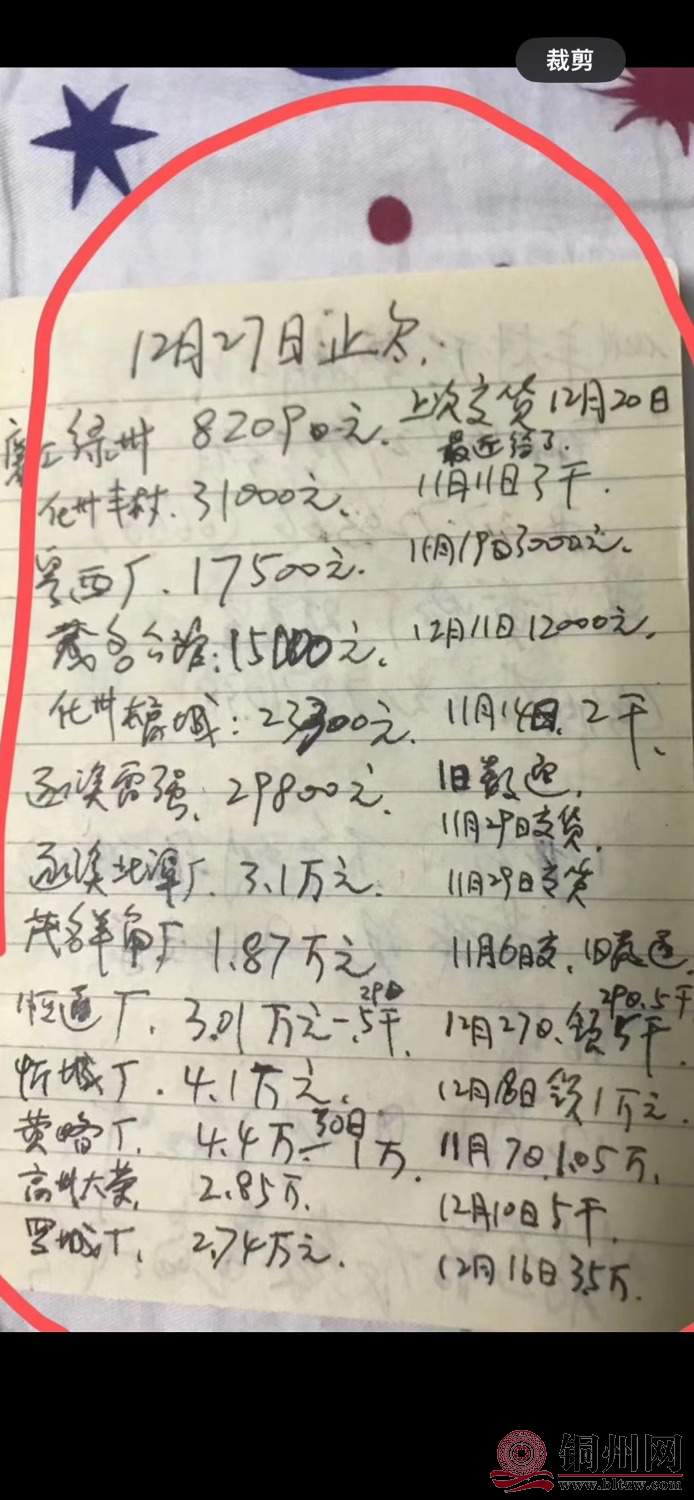 裁剪
12月27日止欠.
廉江绿州 82090元. 上次支货12月20日
最近给了.
化州丰村. 31000元. 11月11日3千.
粤西厂. 17500元. 11月19日3000元.
茂名公馆:15000元. 12月11日12000元.
化州 城:23300元. 11月14日. 2千.
遂溪雷强. 29800元. 旧数 .
11月29日支货.
遂溪北潭厂. 3.1万元. 11月29日支货
茂名羊角厂 1.87万元 11月6日支. 旧数 .
29日 29日.5千
恒通厂. 3.01万元-.5千. 12月27日.领5千.
忻城厂. 4.1万元. 12月18日领1万元.
30日
黄略厂. 4.4万-1万. 11月7日.1.05万.
高州大荣. 2.85万. 12月10日5千.
罗城厂. 2.74万元. 12月16日3.5万.
铜州网
www.bltzw.com